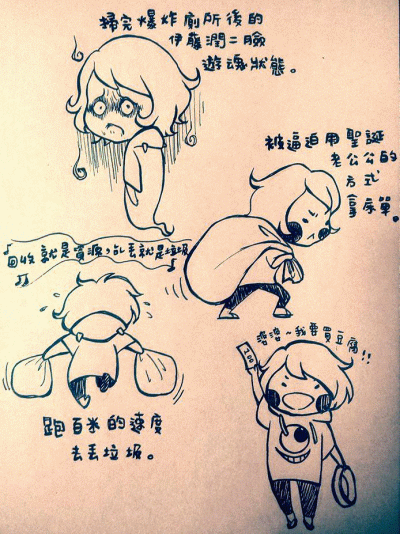 掃完爆炸廁所後的
伊藤潤二臉
遊魂狀態。
被逼迫用聖誕
老公公的
方式
拿床單。
回收就是資源,亂丟就是垃圾
婆婆~我要買豆腐!!
100
跑百米的速度
去丟垃圾。